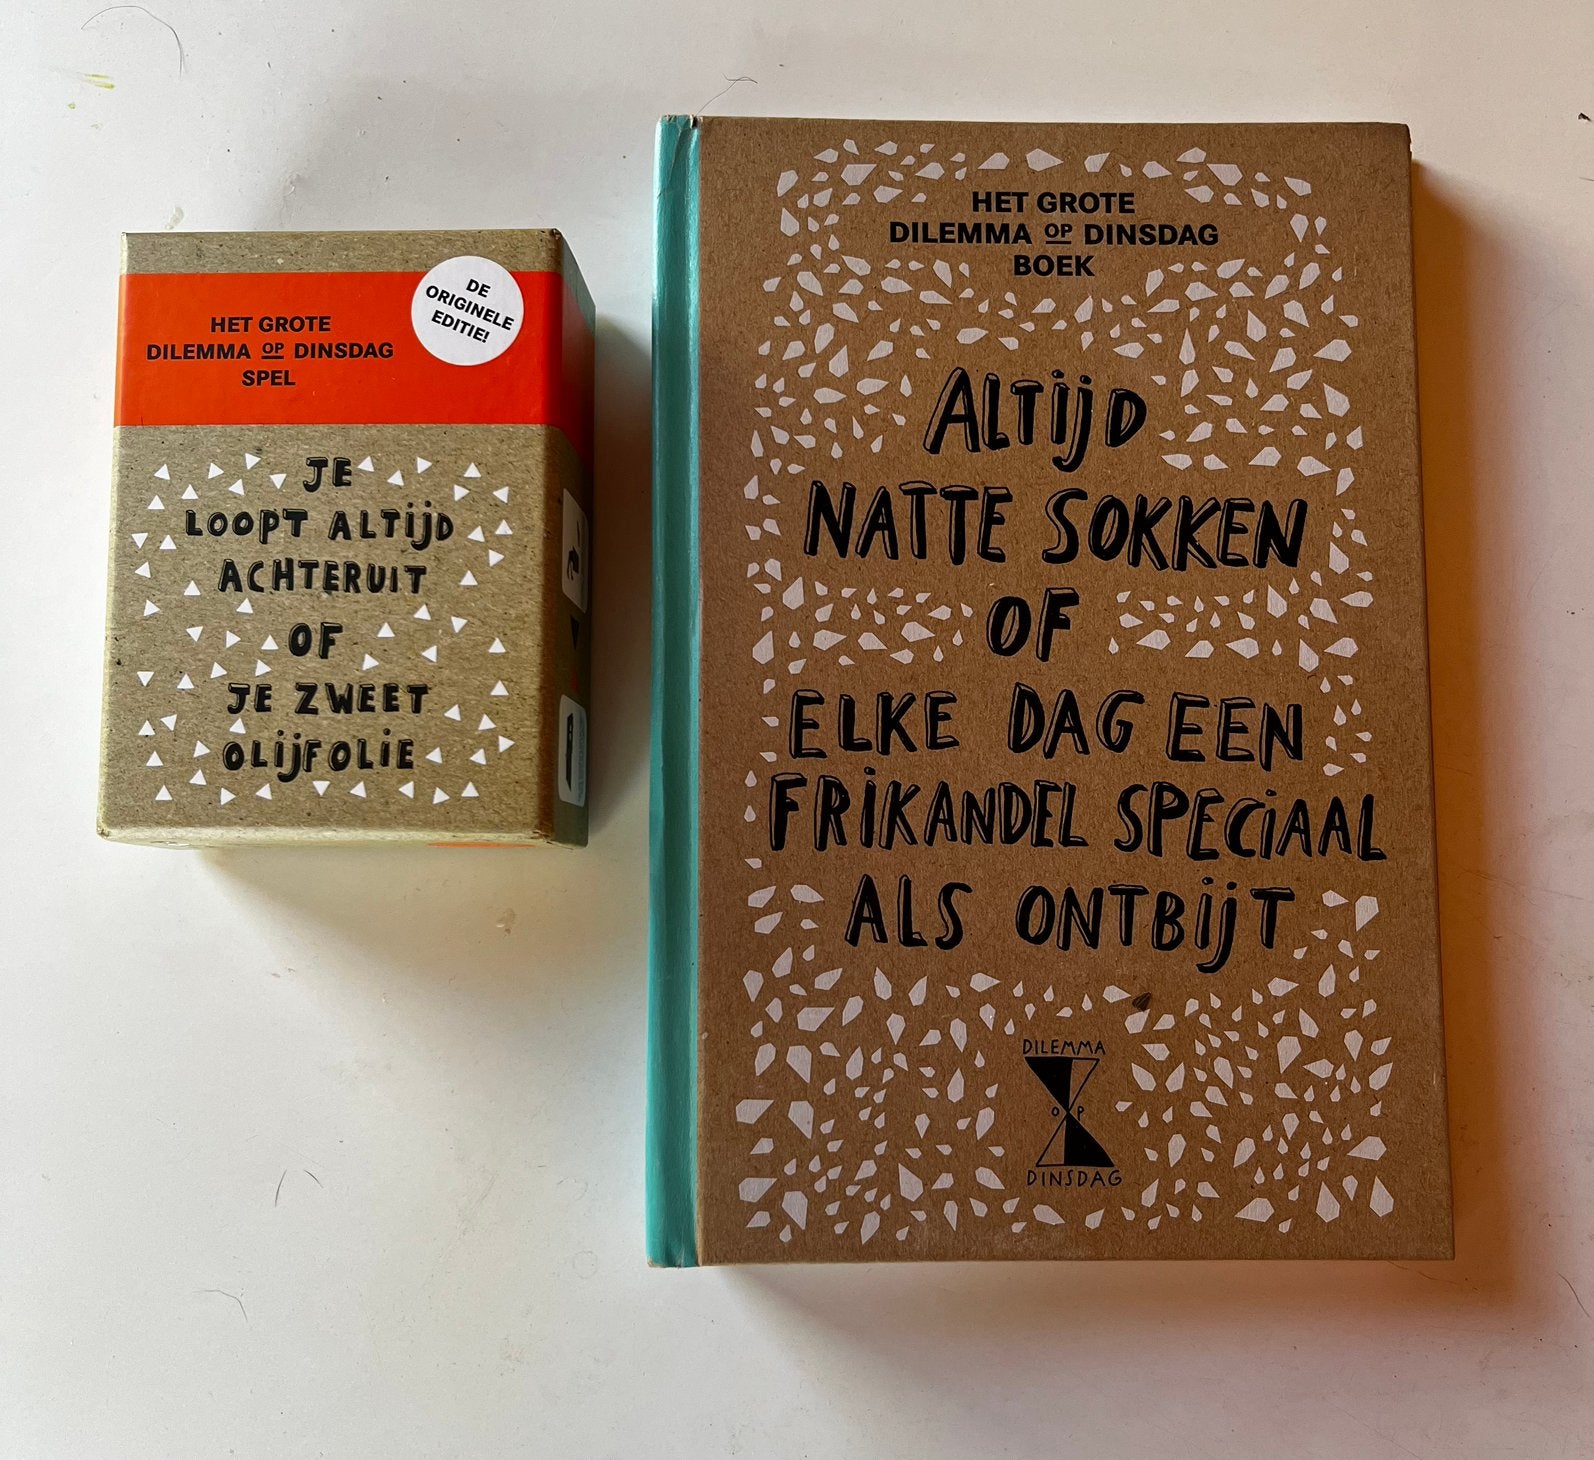 HET GROTE
DILEMMA OP DINSDAG
SPEL
DE
ORIGINELE
EDITIE!
JE
LOOPT ALTIJD
ACHTERUIT
OF
JE ZWEET
OLIJFOLIE
HET GROTE
DILEMMA OP DINSDAG
BOEK
ALTIJD
NATTE SOKKEN
OF
ELKE DAG EEN
FRIKANDEL SPECIAAL
ALS ONTBIJT
DILEMMA
OP
DINSDAG